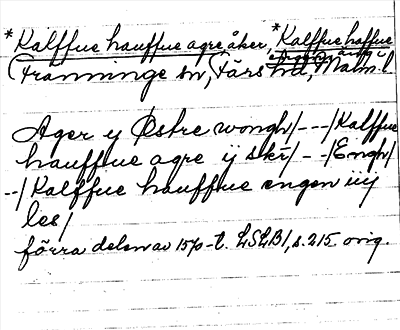 *Kalffue hauffue agre åker, *Kalffue haffue
engen äng i
Tranninge sn, Färs hd, Malm. l
Ager y Østre wongh/---/Kalffue
hauffue agre ij skr/--/Engh/
--/Kalffue hauffue engen iiij
les/
förra delen av 15/0-t. LSLB1, s. 215. orig.